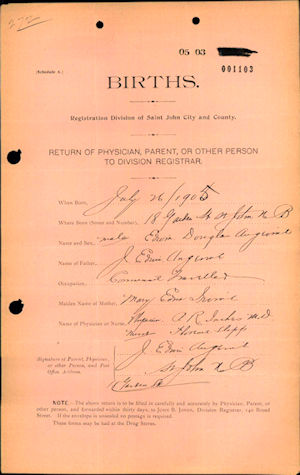 272
05 03
001103
(Schedule A.)
BIRTHS.
Registration Division of Saint John City and County.
RETURN OF PHYSICIAN, PARENT, OR OTHER PERSON
TO DIVISION REGISTRAR.
When Born, July 26/1905
Where Born (Street and Number), 18 Garden St St John N B
Name and Sex, male Edwin Douglas
Name of Father, J. Edwin
Occupation, Commercial Traveller
Maiden Name of Mother, Mary Edna
Name of Physician or Nurse, Physician A R M.D.
Nurse
Signature of Parent, Physician,
or other Person, and Post
Office Address.
J. Edwin
St John N B
Garden St
NOTE.—The above return is to be filled in carefully and accurately by Physician, Parent, or
other person, and forwarded within thirty days, to JOHN B. JONES, Division Registrar, 140 Broad
Street. If the envelope is unsealed no postage is required.
These forms may be had at the Drug Stores.